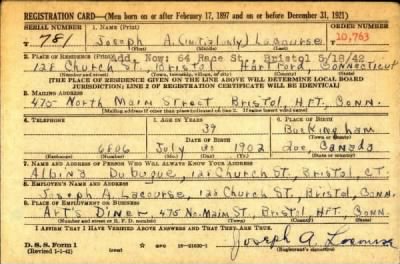 REGISTRATION CARD—(Men born on or after February 17, 1897 and on or before December 31, 1921)
SERIAL NUMBER 1. NAME (Print) ORDER NUMBER
T 781 Joseph A. (initial only) Lacourse 10,763
(First) (Middle) (Last)
Add. Now: 64 Race St., Bristol 5/18/42
2. PLACE OF RESIDENCE (Print)
128 Church St. Bristol Hartford Connecticut
(Number and street) (Town, township, village, or city) (County) (State)
[THE PLACE OF RESIDENCE GIVEN ON THE LINE ABOVE WILL DETERMINE LOCAL BOARD
JURISDICTION; LINE 2 OF REGISTRATION CERTIFICATE WILL BE IDENTICAL]
3. MAILING ADDRESS
475 North Main Street Bristol, HFT., Conn.
[Mailing address if other than place indicated on line 2. If same insert word same]
4. TELEPHONE 5. AGE IN YEARS 6. PLACE OF BIRTH
39 Buckingham
DATE OF BIRTH (Town or county)
6806 July 1902 Canada
(Exchange) (Number) (Mo.) (Day) (Yr.) (State or country)
7. NAME AND ADDRESS OF PERSON WHO WILL ALWAYS KNOW YOUR ADDRESS
Albina Dubuque, 128 Church St., Bristol, CT.
8. EMPLOYER'S NAME AND ADDRESS
Joseph A. Lacourse, 128 Church St., Bristol, Conn.
9. PLACE OF EMPLOYMENT OR BUSINESS
Art's Diner, 475 No. Main St., Bristol, HFT., Conn.
(Number and street or R. F. D. number) (Town) (County) (State)
I AFFIRM THAT I HAVE VERIFIED ABOVE ANSWERS AND THAT THEY ARE TRUE.
D. S. S. Form 1
(Revised 1-1-42) GPO 16—21630-1 Joseph A. Lacourse
(Registrant's signature)